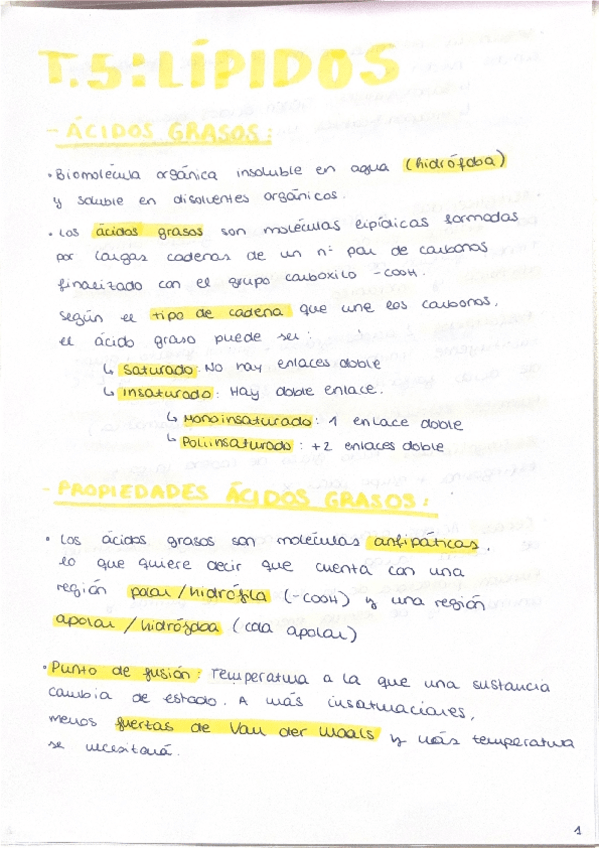 T.5: LÍPIDOS
- ÁCIDOS GRASOS:
• Biomolécula orgánica insoluble en agua (hidrófoba)
y soluble en disolventes orgánicos.
• Los ácidos grasos son moléculas lipídicas formadas
por largas cadenas de un nº par de carbonos
finalizado con el grupo carboxilo -COOH.
Según el tipo de cadena que une los carbonos,
el ácido graso puede ser:
↳ Saturado: No hay enlaces doble
↳ Insaturado: Hay doble enlace.
↳ Monoinsaturado: 1 enlace doble
↳ Poliinsaturado: +2 enlaces doble
- PROPIEDADES ÁCIDOS GRASOS:
• Los ácidos grasos son moléculas anfipáticas,
lo que quiere decir que cuenta con una
región polar/hidrófila (-COOH) y una región
apolar/hidrófoba (cola apolar)
• Punto de fusión: Temperatura a la que una sustancia
cambia de estado. A más insaturaciones,
menos fuertas de Van der Waals y más temperatura
se necesitará.
1